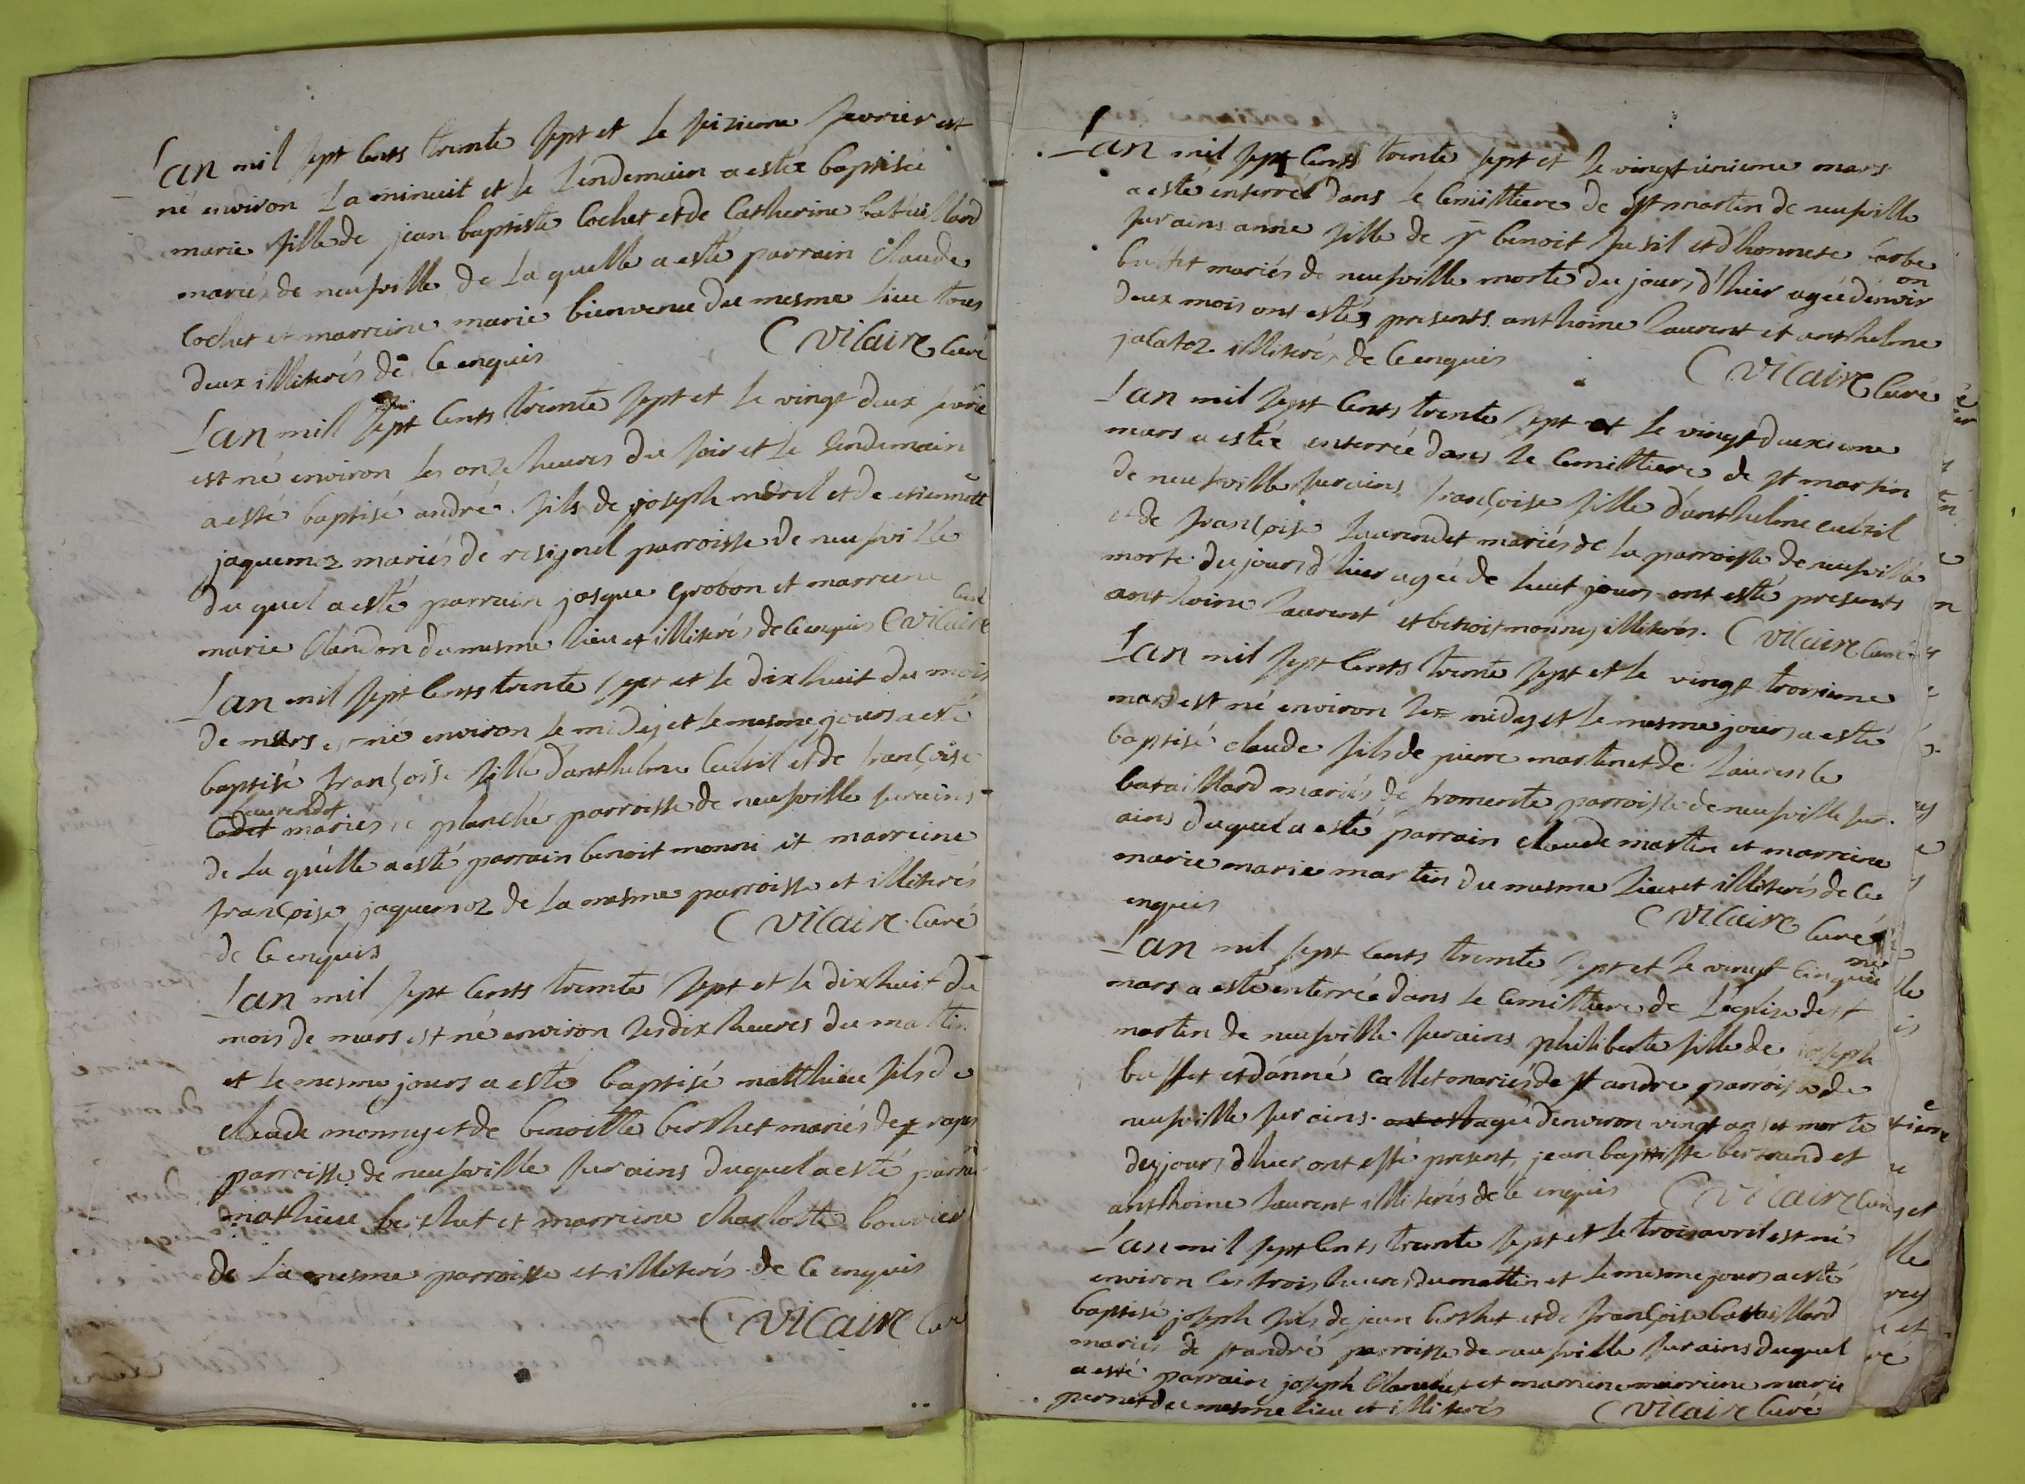 Lan mil sept cents trente sept et le sizieme fevrier est
né environ la minuit et le lendemain a estée baptisée
marie fille de jean baptiste Cochet et de Catherine bataillard
mariés de neufville de la quelle a esté parrain Claude
Cochet et marreine marie bienvenue du mesme lieu tous
deux illiterés de ce enquis C Vilaire Curé
Lan mil sept cents trente sept et le vingt deux fevrie
est né environ les onze heures du soir et le lendemain
a esté baptisé andré fils de joseph morel et de etiennette
jaquemoz mariés de resignel parroisse de neufville
du quel a esté parrain josque grobon et marreine
marie Claudon du mesme lieu et illiterés de ce enquis C Vilaire Curé
Lan mil sept cents trente sept et le dix huit du mois
de mars est né environ le midy et le mesme jours a esté
baptisé françoise fille d'anthelme Cuésil et de françoise
laurendet mariés de planche parroisse de neufville sur ains
de la quelle a esté parrain benoit monni et marreine
françoise jaquemoz de la mesme parroisse et illiterés
de ce enquis C Vilaire Curé
Lan mil sept cents trente sept et le dix huit du
mois de mars est né environ les dix heures du mattin
et le mesme jours a esté baptisé matthieu fils de
claude monny et de benoitte berthet mariés de
parroisse de neufville sur ains duquel a esté parrain
mathieu berthet et marreine charlotte bouvier
de la mesme parroisse et illiterés de ce enquis
C Vilaire Cur
Lan mil sept cents trente sept et le vingt unieme mars
a esté enterrée dans le Cemittiere de st martin de neufville
sur ains anne fille de sr benoit fusil et d'honnete barbe
buffet mariés de neufville morte du jours d'hier agée d'environ
deux mois ont estés presents anthoine laurent et anthelme
jalatoz illiterés de ce enquis C Vilaire Curé
Lan mil sept cents trente sept et le vingt deuxieme
mars a estée enterrée dans le Cemittiere de st martin
de neufville sur ains françoise fille d'anthelme cuésil
et de françoise laurendet mariés de la parroisse de neufville
morte du jours d'hier agée de huit jours ont esté presents
anthoine laurent et benoit monny illiterés. C Vilaire Curé
Lan mil sept cents trente sept et le vingt troisieme
mars est né environ le midy et le mesme jours a esté
baptisé claude fils de pierre martin et de laurence
bataillard mariés de fromente parroisse de neufville sur
ains duquel a esté parrain claude martin et marreine
marie marie martin du mesme lieu et illiterés de ce
enquis C Vilaire Curé
Lan mil sept cents trente sept et le vingt cinquieme
mars a esté enterrée dans le Cemittiere de Leglise de st
martin de neufville sur ains philiberte fille de joseph
buffet et d'anne callet mariés de st andre parroisse de
neufville sur ains agé denviron vingt ans et morte
du jours d'hier ont esté present jean baptiste bertrand et
anthoine laurent illiterés de ce enquis C Vilaire Curé
Lan mil sept cents trente sept et le trois avril est né
environ les trois heures du mattin et le mesme jours a esté
baptisé joseph fils de jean berthet et de françoise bataillard
mariés de st andré parroisse de neufville sur ains duquel
a esté parrain joseph et marreine marreine marie
pernet du mesme lieu et illiterés C Vilaire Curé